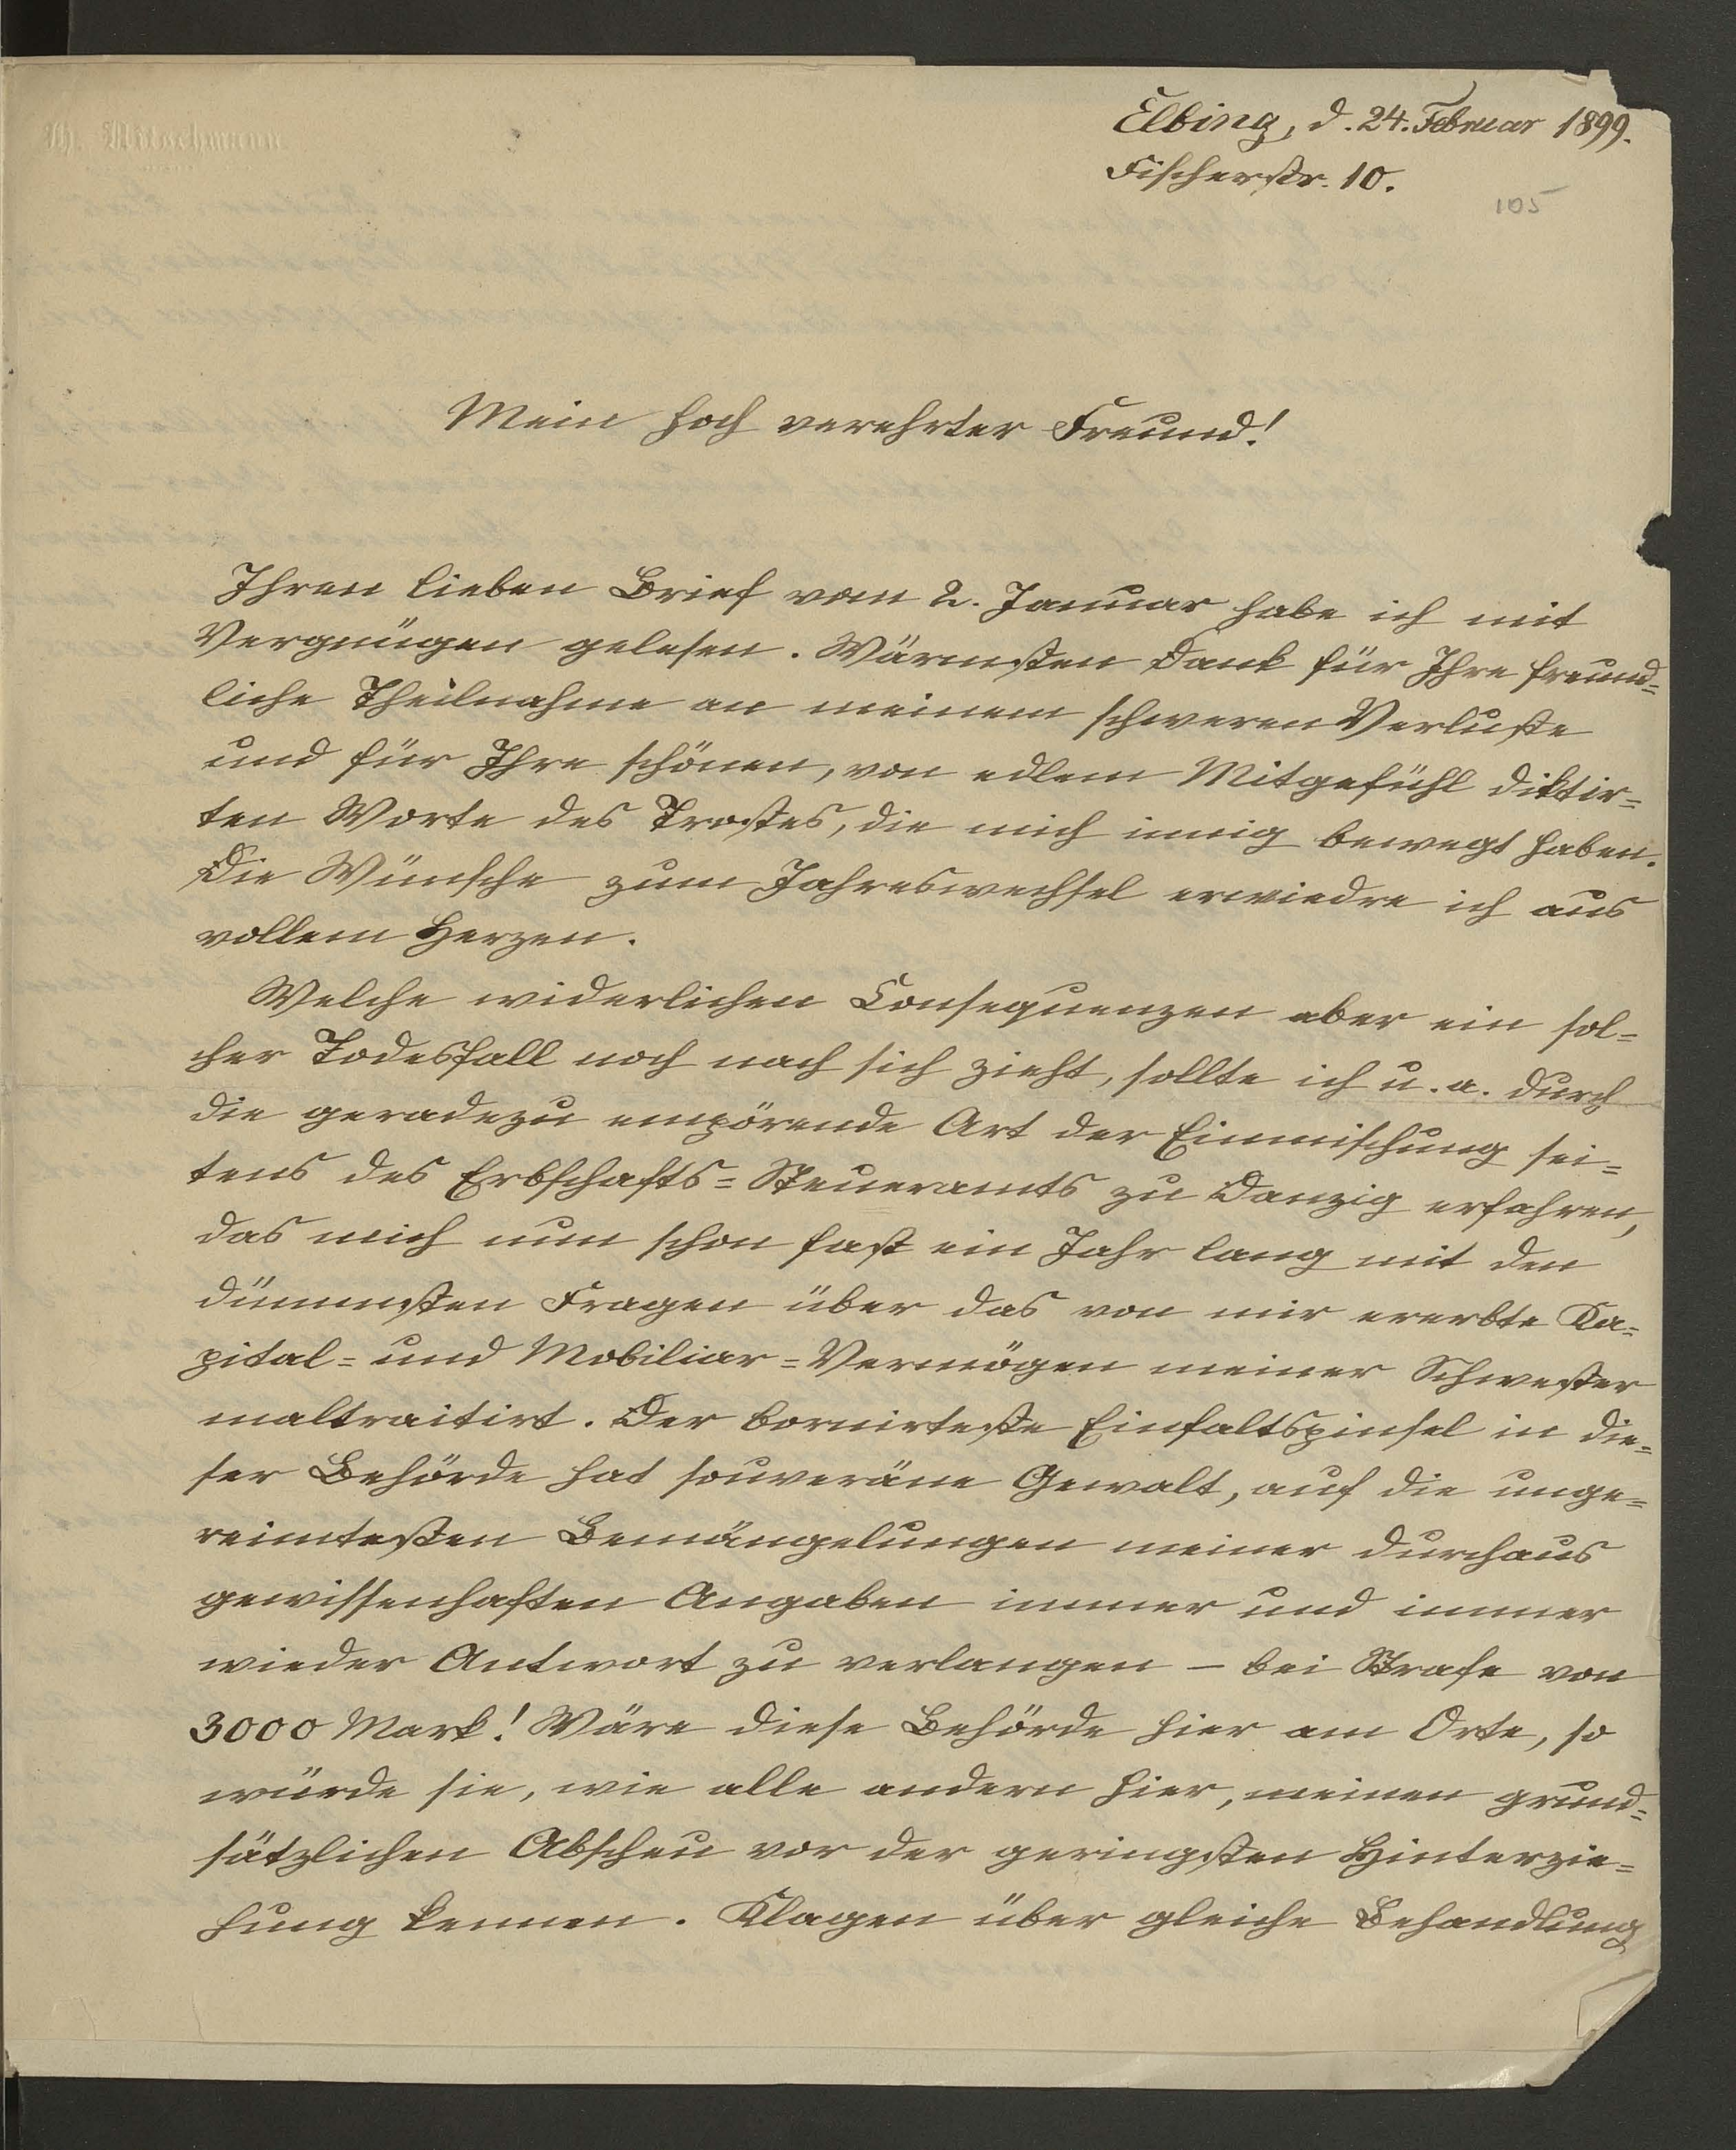 Th. Mitschmann
Elbing, d. 24. Februar 1899.
Fischerstr. 10.
105
Mein hoch verehrter Freund!
Ihren lieben Brief vom 2. Januar habe ich mit
Vergnügen gelesen. Wärmsten Dank für Ihre freund=
liche Theilnahme an meinem schweren Verluste
und für Ihre schönen, von edlem Mitgefühl diktir=
ten Worte des Trostes, die mich innig bewegt haben.
Die Wünsche zum Jahreswechsel erwiedre ich aus
vollem Herzen.
Welche widerlichen Consequenzen aber ein sol=
cher Todesfall noch nach sich zieht, sollte ich u. a. durch
die geradezu empörende Art der Einmischung sei=
tens des Erbschafts=Steueramts zu Danzig erfahren,
das mich nun schon fast ein Jahr lang mit den
dümmsten Fragen über das von mir ererbte Ka=
pital= und Mobiliar=Vermögen meiner Schwester
maltraitirt. Der bornirteste Einfaltspinsel in die=
ser Behörde hat souveräne Gewalt, auf die unge=
reimtesten Bemängelungen meiner durchaus
gewissenhaften Angaben immer und immer
wieder Antwort zu verlangen – bei Strafe von
3000 Mark! Wäre diese Behörde hier am Orte, so
würde sie, wie alle andern hier, meinen grund=
sätzlichen Abscheu vor der geringsten Hinterzie=
hung kennen. Klagen über gleiche Behandlung